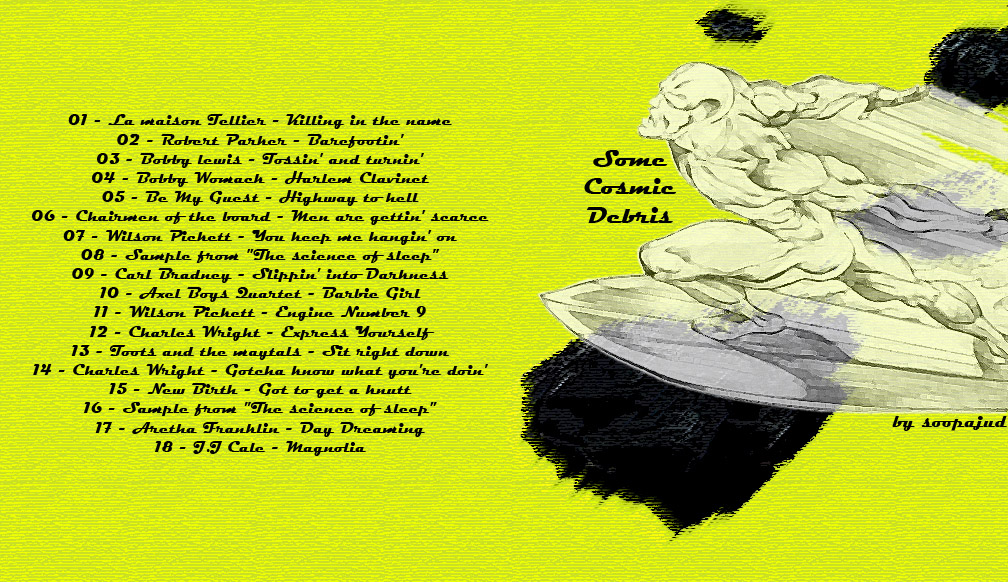 01 - La maison Tellier - Killing in the name
02 - Robert Parker - Barefootin'
03 - Bobby lewis - Tossin' and turnin'
04 - Bobby Womach - Harlem Clavinet
05 - Be My Guest - Highway to hell
06 - Chairmen of the board - Men are gettin' scarce
07 - Wilson Pickett - You keep me hangin' on
08 - Sample from "The science of sleep"
09 - Carl Bradney - Slippin' into Darkness
10 - Axel Boys Quartet - Barbie Girl
11 - Wilson Pickett - Engine Number 9
12 - Charles Wright - Express Yourself
13 - Toots and the maytals - Sit right down
14 - Charles Wright - Gotcha know what you're doin'
15 - New Birth - Got to get a knutt
16 - Sample from "The science of sleep"
17 - Aretha Franklin - Day Dreaming
18 - J.J Cale - Magnolia
Some
Cosmic
Debris
by soopajud